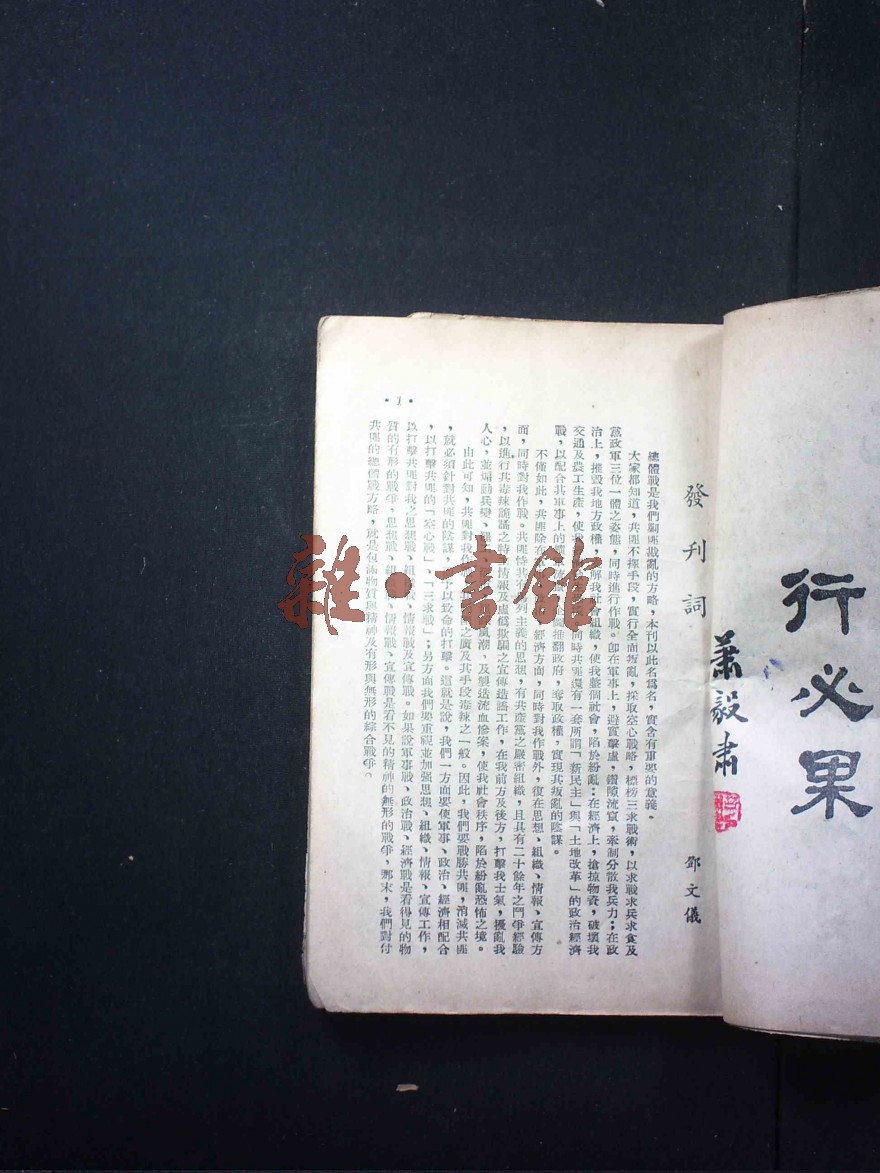 行必果
蕭毅肅
發刊詞
鄧文儀
總體戰是我們剿匪戡亂的方略,本刊以此名爲名,實含有重要的意義。
大家都知道,共匪不擇手段,實行全面叛亂,採取空心戰略,標榜三求戰術,以求戰求兵求食及
黨政軍三位一體之姿態,同時進行作戰。卽在軍事上,避實擊虛,鑽隙流竄,牽制分散我兵力;在政
治上,摧毀我地方政權,解我社會組織,使我整個社會,陷於紛亂;在經濟上,搶掠物資,破壞我
交通及農工生產,使我 同時共匪還有一套所謂「新民主」與「土地改革」的政治經濟
戰,以配合其軍事上的 推翻政府,奪取政權,實現其叛亂的陰謀。
不僅如此,共匪除在 經濟方面,同時對我作戰外,復在思想、組織、情報、宣傳方
面,同時對我作戰。共匪恃其 列主義的思想,有共產黨之嚴密組織,且具有二十餘年之鬥爭經驗
,以進行其毒辣詭譎之特 情報及虛僞欺騙之宣傳造謠工作,在我前方及後方,打擊我士氣,擾亂我
人心,並煽動兵變、 風潮、及製造流血慘案,使我社會秩序,陷於紛亂恐怖之境。
由此可知,共匪對我作 之廣及其手段毒辣之一般。因此,我們要戰勝共匪,消滅共匪
,就必須針對共匪的陰謀, 以致命的打擊。這就是說,我們一方面要使軍事、政治、經濟相配合
,以打擊共匪的「空心戰」、「三求戰」;另方面我們要重視並加强思想、組織、情報、宣傳工作,
以打擊共匪對我之思想戰、組 戰、情報戰及宣傳戰。如果說軍事戰、政治戰、經濟戰是看得見的物
質的有形的戰爭,思想戰、組 、情報戰、宣傳戰是看不見的精神的無形的戰爭,那末,我們對付
共匪的總體戰方略,就是包涵物質與精神及有形與無形的綜合戰爭。
·1·
雜·書館